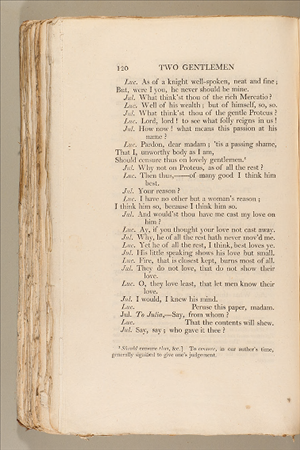 120 TWO GENTLEMEN
Luc. As of a knight well-spoken, neat and fine;
But, were I you, he never should be mine.
Jul. What think'st thou of the rich Mercatio?
Luc. Well of his wealth; but of himself, so, so.
Jul. What think'st thou of the gentle Proteus?
Luc. Lord, lord! to see what folly reigns in us!
Jul. How now! what means this passion at his
name?
Luc. Pardon, dear madam; 'tis a passing shame,
That I, unworthy body as I am,
Should censure thus on lovely gentlemen.⁴
Jul. Why not on Proteus, as of all the rest?
Luc. Then thus,——of many good I think him
best.
Jul. Your reason?
Luc. I have no other but a woman's reason;
I think him so, because I think him so.
Jul. And would'st thou have me cast my love on
him?
Luc. Ay, if you thought your love not cast away.
Jul. Why, he of all the rest hath never mov'd me.
Luc. Yet he of all the rest, I think, best loves ye.
Jul. His little speaking shows his love but small.
Luc. Fire, that is closest kept, burns most of all.
Jul. They do not love, that do not show their
love.
Luc. O, they love least, that let men know their
love.
Jul. I would, I knew his mind.
Luc. Peruse this paper, madam.
Jul. To Julia,—Say, from whom?
Luc. That the contents will shew.
Jul. Say, say; who gave it thee?
⁴ Should censure thus, &c.] To censure, in our author's time,
generally signified to give one's judgement.